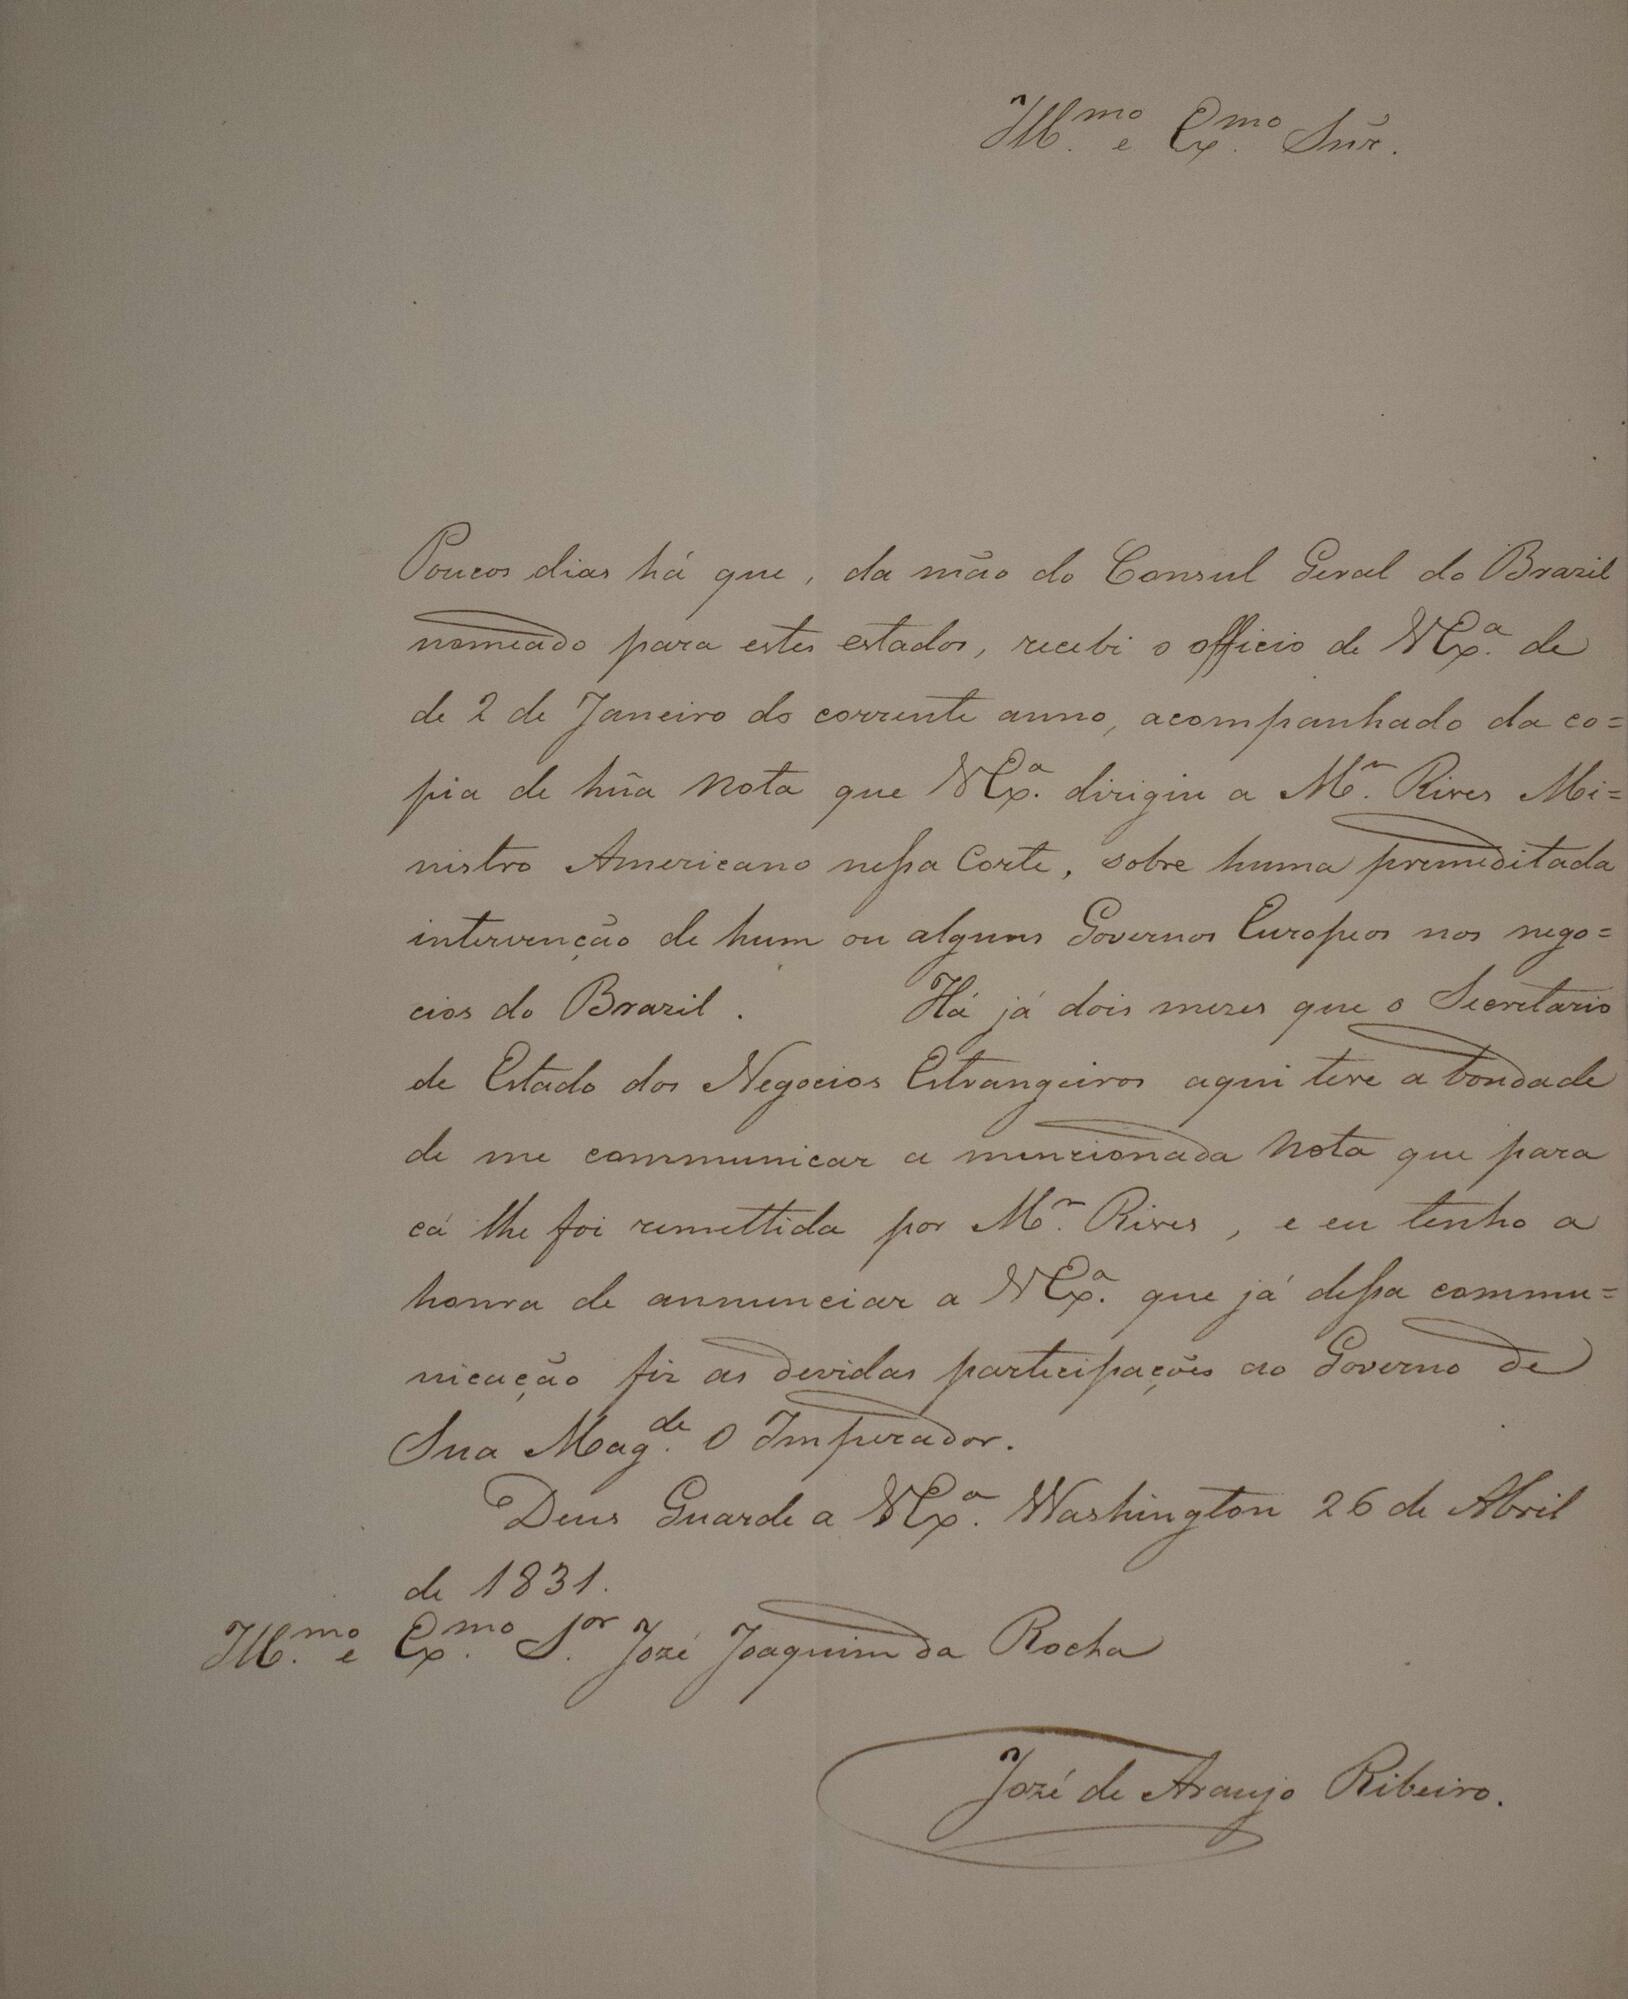 Ill.mo e Ex.mo Snr.
Poucos dias há que, da mão do Consul Geral do Brazil
nomeado para estes estados, recebi o officio de V Ex.a de
de 2 de Janeiro do corrente anno, acompanhado da co=
pia de hũa Nota que V Ex.a dirigiu a M.r Rives Mi=
nistro Americano nessa Corte, sobre huma premeditada
intervenção de hum ou alguns Governos Europeos nos nego=
cios do Brazil. Há já dois mezes que o Secretario
de Estado dos Negocios Estrangeiros aqui teve a bondade
de me communicar a mencionada Nota que para
cá lhe foi remettida por M.r Rives, e eu tenho a
honra de annunciar a V Ex.a que já dessa commu=
nicação fiz as devidas participações ao Governo de
Sua Mag.de O Imperador.
Deus Guarde a V Ex.a Washington 26 de Abril
de 1831.
Ill.mo e Ex.mo S.or Jozé Joaquim da Rocha
Jozé de Araujo Ribeiro.